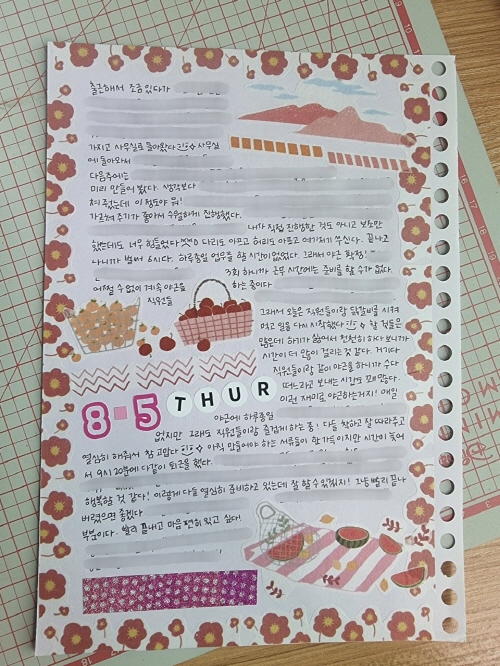 출근해서 조금 있다가
가지고 사무실로 돌아왔다 사무실
에 돌아와서
다음주에는
미리 만들어 봤다. 생각보다
쳐줬는데 이 정도야 뭐!
가르쳐주기가 좋아서 수월하게 진행했다.
내가 직접 진행한 것도 아니고 보조만
했는데도 너무 힘들었다 다리도 아프고 허리도 아프고 여기저기 쑤신다. 끝나고
나니까 벌써 6시다. 하루종일 업무를 할 시간이 없었다. 그래서 야근 확정!
기회하니까 근무시간에는 준비를 할 수가 없다.
어쩔 수 없이 계속 야근을 하는 중이다
직원들
그래서 오늘은 직원들이랑 닭갈비를 시켜
먹고 일을 다시 시작했다 할 것들은
많은데 하기가 싫어서 천천히 하다보니까
시간이 더 많이 걸리는 것 같다. 거기다
직원들이랑 같이 야근을 하니까 수다
떠느라고 보내는 시간도 꽤 많다.
이런 재미로 야근하는거지! 매일
8-5 THUR
야근에 하루종일
없지만 그래도 직원들이랑 즐겁게 하는 중! 다들 착하고 잘 따라주고
열심히 해줘서 참 고맙다 아직 만들어야 하는 서류들이 한가득이지만 시간이 늦어
서 9시 20분에 다같이 퇴근을 했다.
행복할 것 같다! 이렇게 다들 열심히 준비하고 있는데 잘 할 수 있겠지! 그냥 빨리 끝나
버렸으면 좋겠다
부분이다. 빨리 끝내고 마음 편히 있고 싶다!